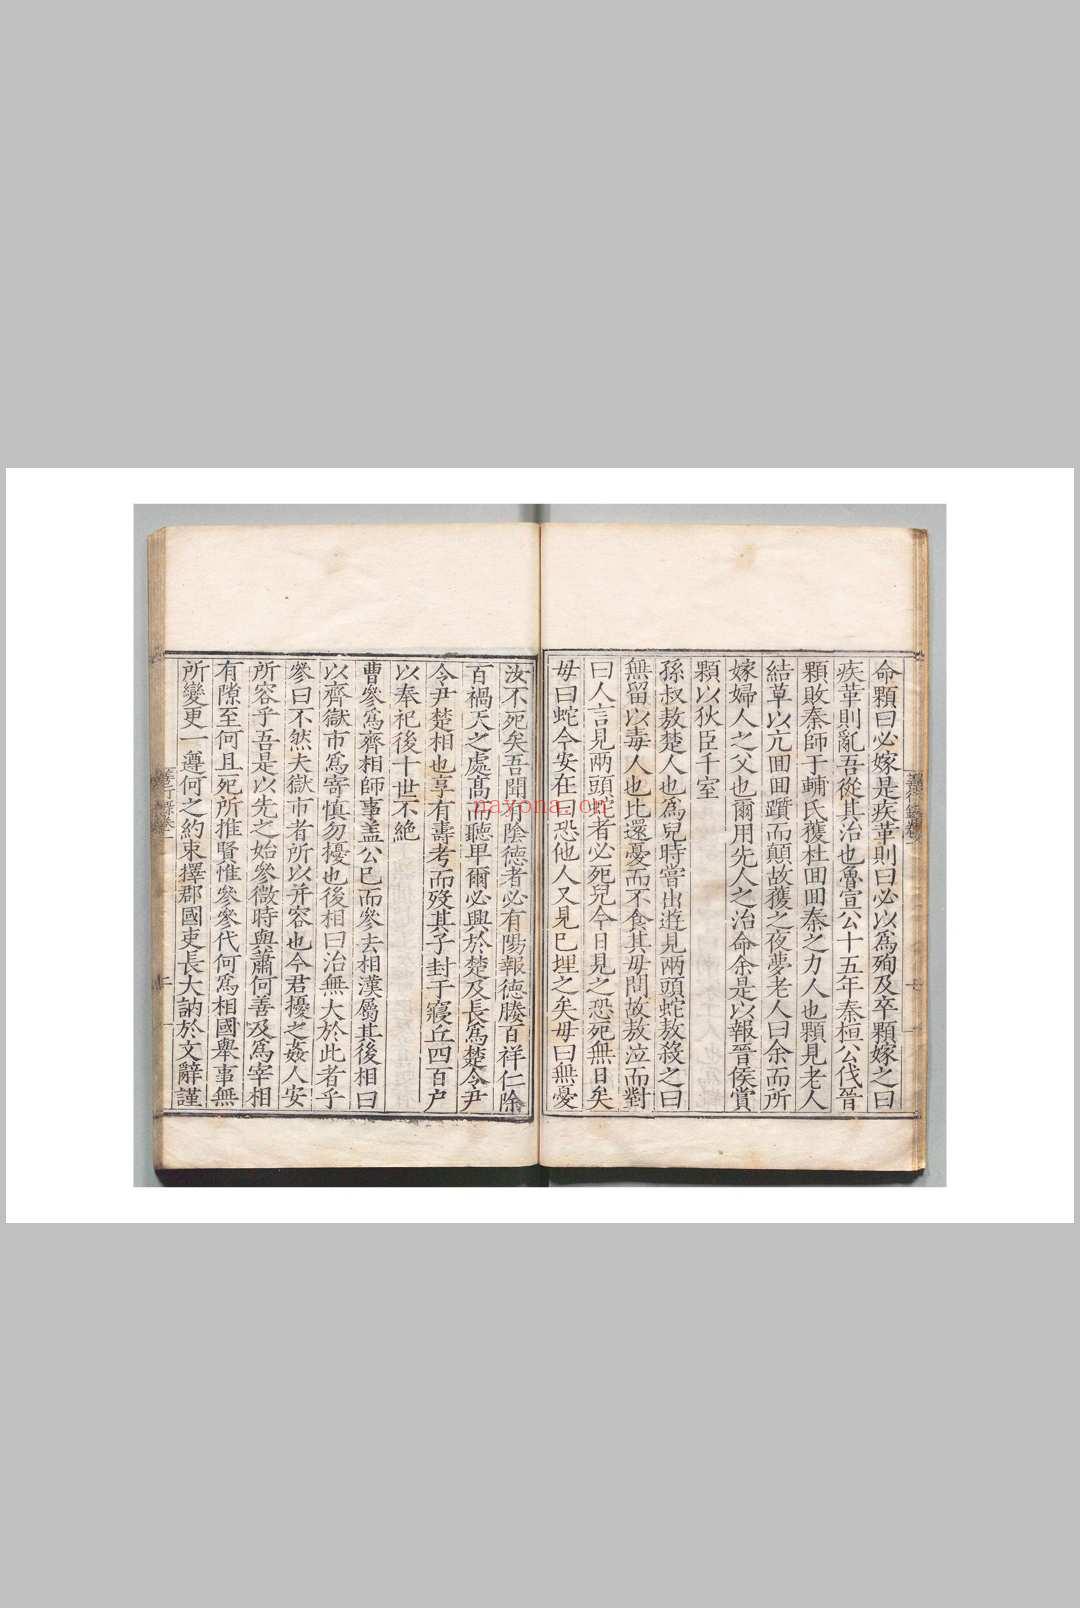 命顆曰必嫁是疾革則曰必以為殉及卒顆嫁之曰
疾革則亂吾從其治也魯宣公十五年秦桓公伐晉
顆敗秦師于輔氏獲杜回回秦之力人也顆見老人
結草以亢回回躓而顛故獲之夜夢老人曰余而所
嫁婦人之父也爾用先人之治命余是以報晉侯賞
顆以狄臣千室
孫叔敖楚人也為兒時嘗出遊見兩頭蛇敖殺之曰
無留以毒人也比還憂而不食其母問故敖泣而對
曰人言見兩頭蛇者必死兒今日見之恐死無日矣
母曰蛇今安在曰恐他人又見已埋之矣母曰無憂
汝不死矣吾聞有陰德者必有陽報德勝百祥仁除
百禍天之處髙而聽卑爾必興於楚及長為楚令尹
令尹楚相也享有壽考而歿其子封于寢丘四百户
以奉祀後十世不絶
曹參為齊相師事盖公已而參去相漢屬其後相曰
以齊獄市為寄慎勿擾也後相曰治無大於此者乎
參曰不然夫獄市者所以并容也今君擾之姦人安
所容乎吾是以先之始參微時與蕭何善及為宰相
有隙至何且死所推賢惟參參代何為相國舉事無
所變更一遵何之約束擇郡國吏長大訥於文辭謹
nayona.cn